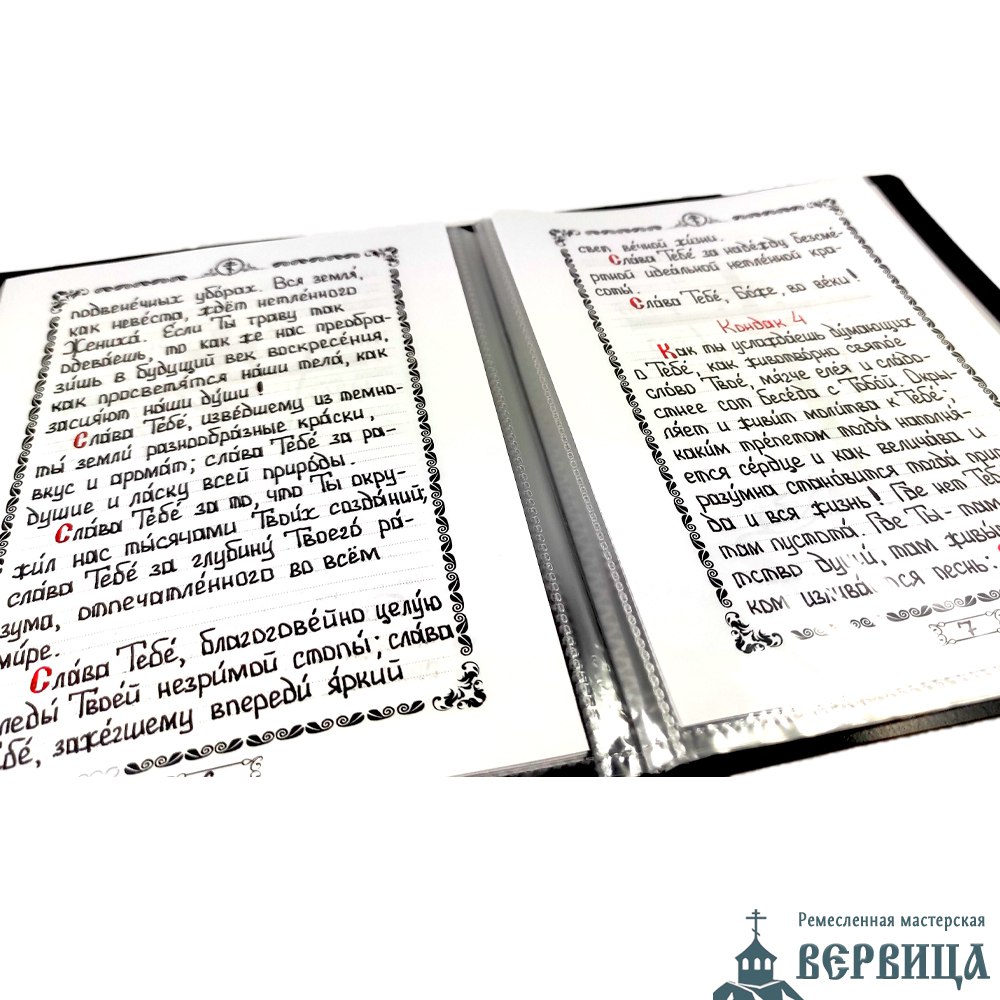 подвене́чных убо́рах. Вся земля́,
как неве́ста, ждёт нетле́нного
Жениха́. Если Ты траву так
одева́ешь, то как же нас преобра-
зи́шь в будущий век воскресе́ния,
как просветя́тся на́ши тела́, как
засия́ют на́ши ду́ши!
Сла́ва Тебе́, изве́дшему из темно-
ты́ земли́ разнообра́зные кра́ски,
вкус и арома́т; сла́ва Тебе́ за ра-
душие и ла́ску всей приро́ды.
Сла́ва Тебе́ за то, что Ты окру-
жи́л нас ты́сячами Твои́х созда́ний;
сла́ва Тебе́ за глубину́ Твоего́ ра́-
зума, отпечатле́нного во всём
ми́ре.
Сла́ва Тебе́, благогове́йно целу́ю
леды́ Твое́й незри́мой стопы́; сла́ва
бе́, заже́гшему впереди́ я́ркий
свет ве́чной жи́зни.
Сла́ва Тебе́ за наде́жду безсме́-
ртной идеа́льной нетле́нной кра-
соты́.
Сла́ва Тебе́, Бо́же, во ве́ки!
Кондак 4
Как ты услажда́ешь ду́мающих
о Тебе́, как животво́рно свято́е
сло́во Твое́, мя́гче еле́я и сла́до-
стнее сот бесе́да с Тобо́й. Окры-
ля́ет и живи́т моли́тва к Тебе́;
каки́м тре́петом тогда́ наполня-
ется се́рдце и как велича́ва и
разу́мна стано́вится тогда́ при
да и вся жизнь! Где нет Теб
там пустота́. Где Ты - там
тство души́, там живы́
ком излива́ тся песнь:
7
Ремесленная мастерская
ВЕРВИЦА